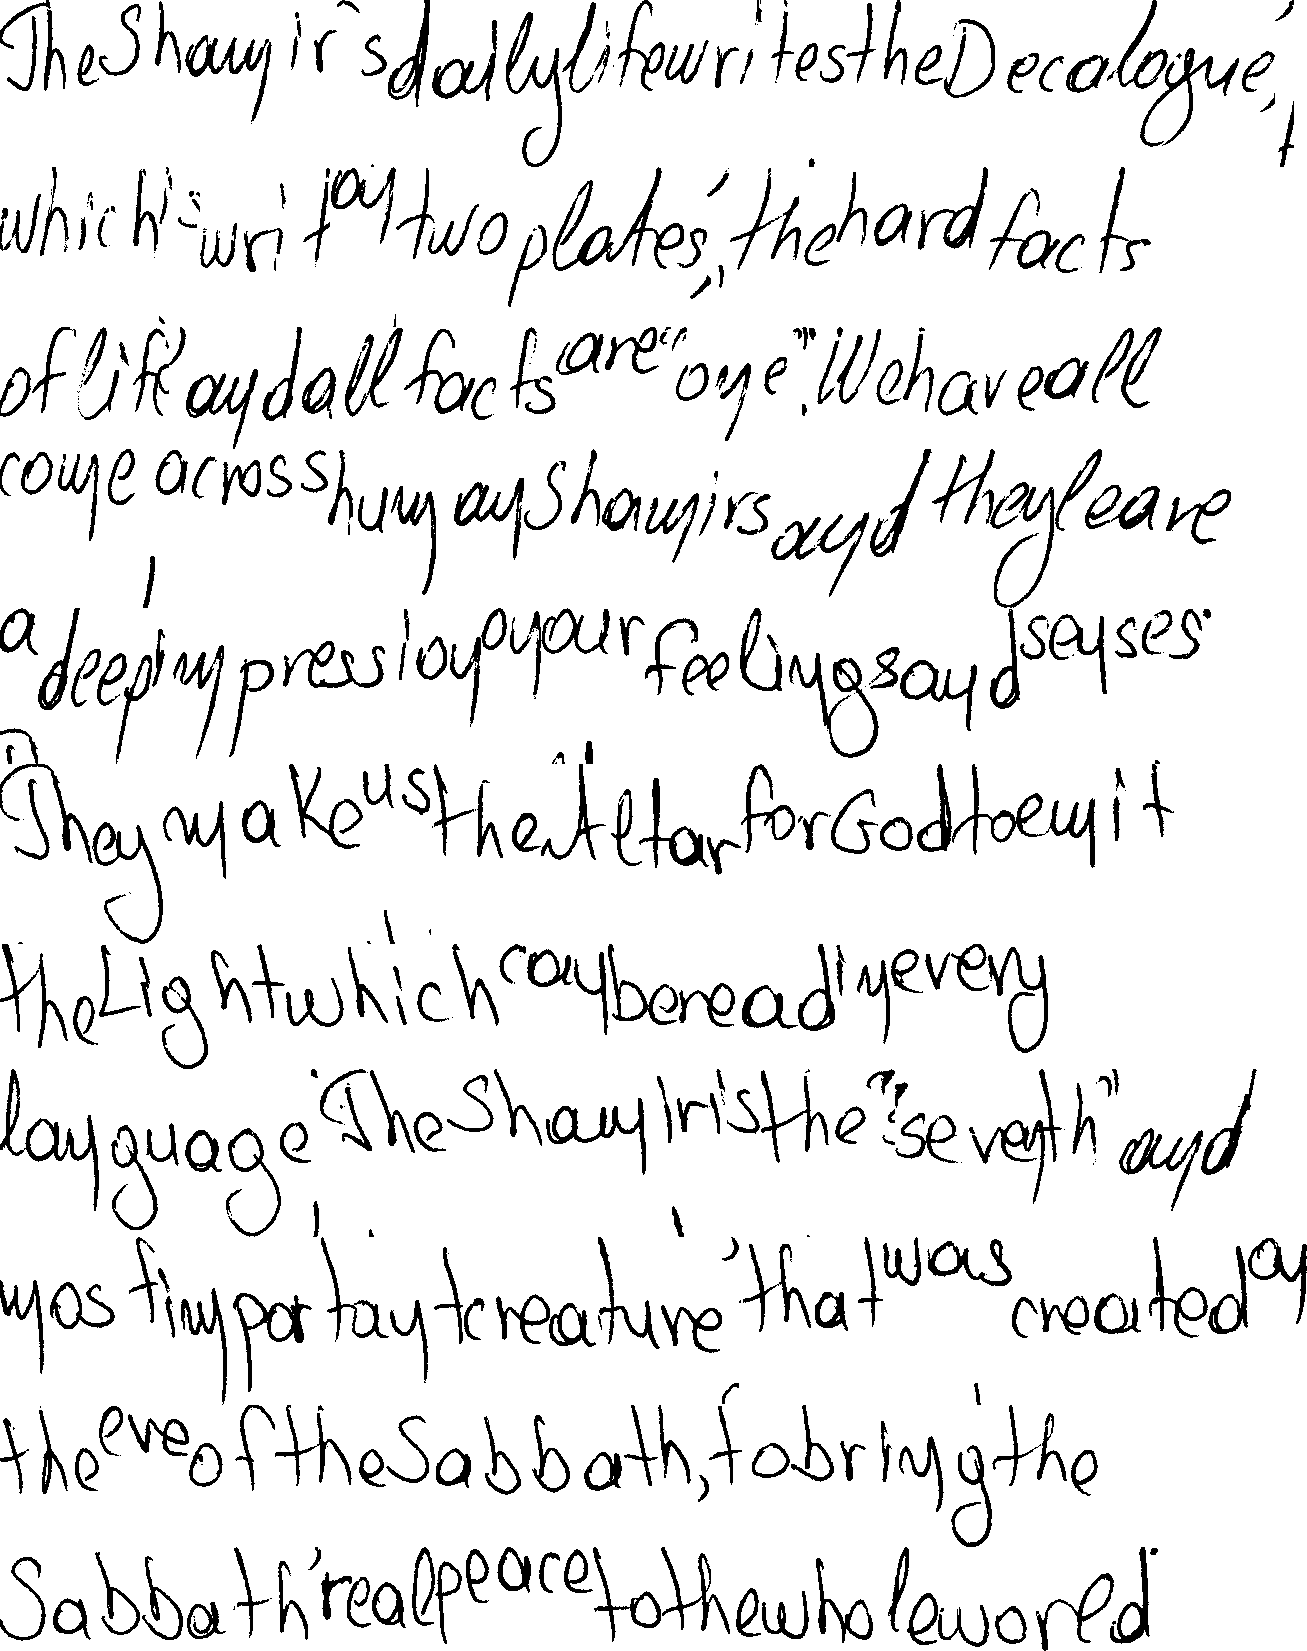 The Shamir's daily life writes the Decalogue,
which is writ on two plates, the hard facts
of life and all facts are "one". We have all
come across human Shamirs and they leave
a deep impression on our feelings and senses.
They make us the Altar for God to emit
the Light which can be read in every
language. The Shamir is the "seventh" and
most important creature that was created on
the eve of the Sabbath, to bring the
Sabbath real peace to the whole world